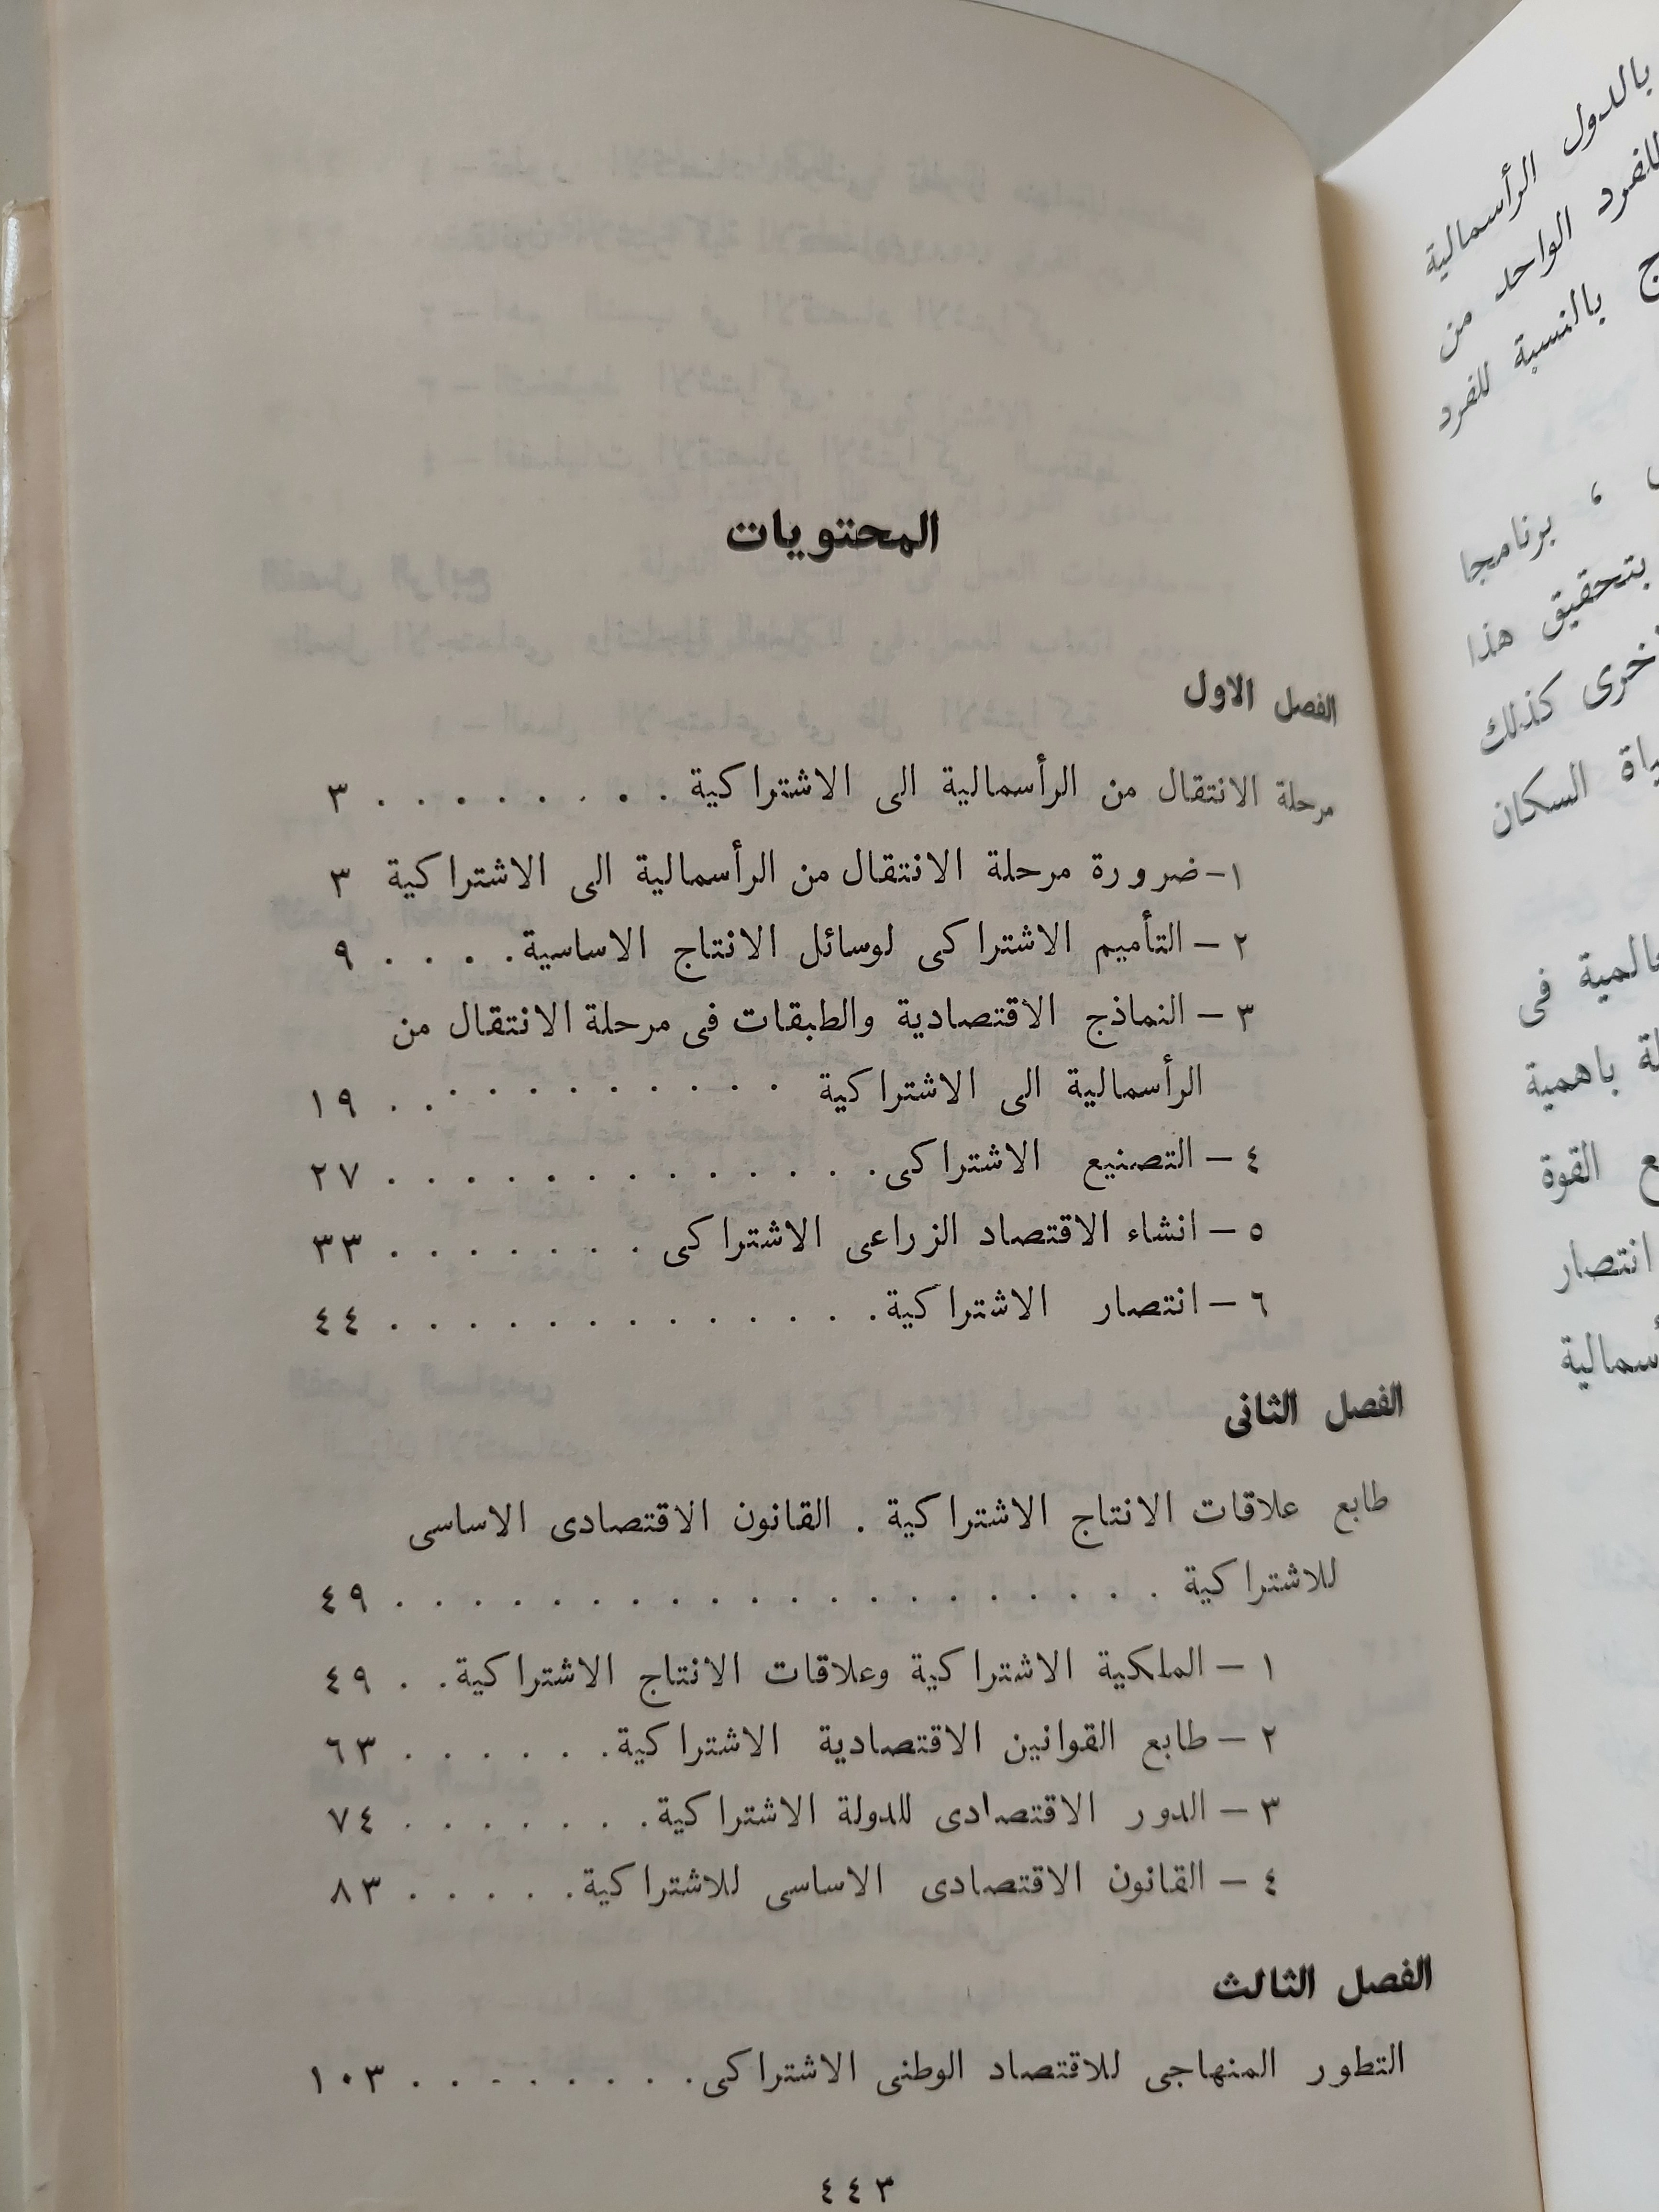 المحتويات
الفصل الاول
مرحلة الانتقال من الرأسمالية الى الاشتراكية . . . . . . . . . ٣
١– ضرورة مرحلة الانتقال من الرأسمالية الى الاشتراكية ٣
٢ – التأميم الاشتراكى لوسائل الانتاج الاساسية . . . . ٩
٣ – النماذج الاقتصادية والطبقات فى مرحلة الانتقال من
الرأسمالية الى الاشتراكية . . . . . . . . . . . ١٩
٤ – التصنيع الاشتراكى . . . . . . . . . . . . ٢٧
٥ – انشاء الاقتصاد الزراعى الاشتراكى . . . . . . . ٣٣
٦ – انتصار الاشتراكية . . . . . . . . . . . . ٤٤
الفصل الثانى
طابع علاقات الانتاج الاشتراكية . القانون الاقتصادى الاساسى
للاشتراكية . . . . . . . . . . . . . . . . . ٤٩
١ – الملكية الاشتراكية وعلاقات الانتاج الاشتراكية . . ٤٩
٢ – طابع القوانين الاقتصادية الاشتراكية . . . . . . ٦٣
٣ – الدور الاقتصادى للدولة الاشتراكية . . . . . . . ٧٤
٤ – القانون الاقتصادى الاساسى للاشتراكية . . . . . ٨٣
الفصل الثالث
التطور المنهاجى للاقتصاد الوطنى الاشتراكى . . . . . . . . ١٠٣
٤٤٣
بالدول الرأسمالية
للفرد الواحد من
بالنسبة للفرد
، برنامجا
بتحقيق هذا
كذلك
السكان
فى
باهمية
القوة
انتصار